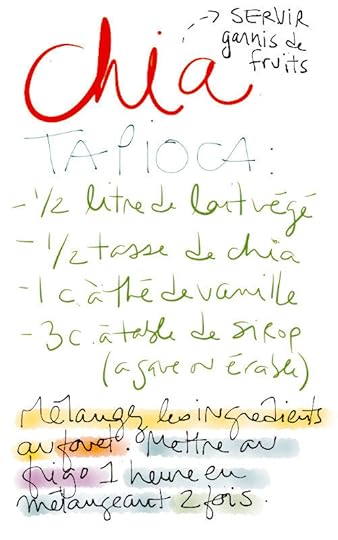 chia
-> SERVIR
garnis de
fruits
TAPIOCA :
- 1/2 litre de lait végé
- 1/2 tasse de chia
- 1 c. à thé de vanille
- 3 c. à table de sirop
(agave ou érable)
Mélangez les ingrédients
au fouet. Mettre au
frigo 1 heure en
mélangeant 2 fois.